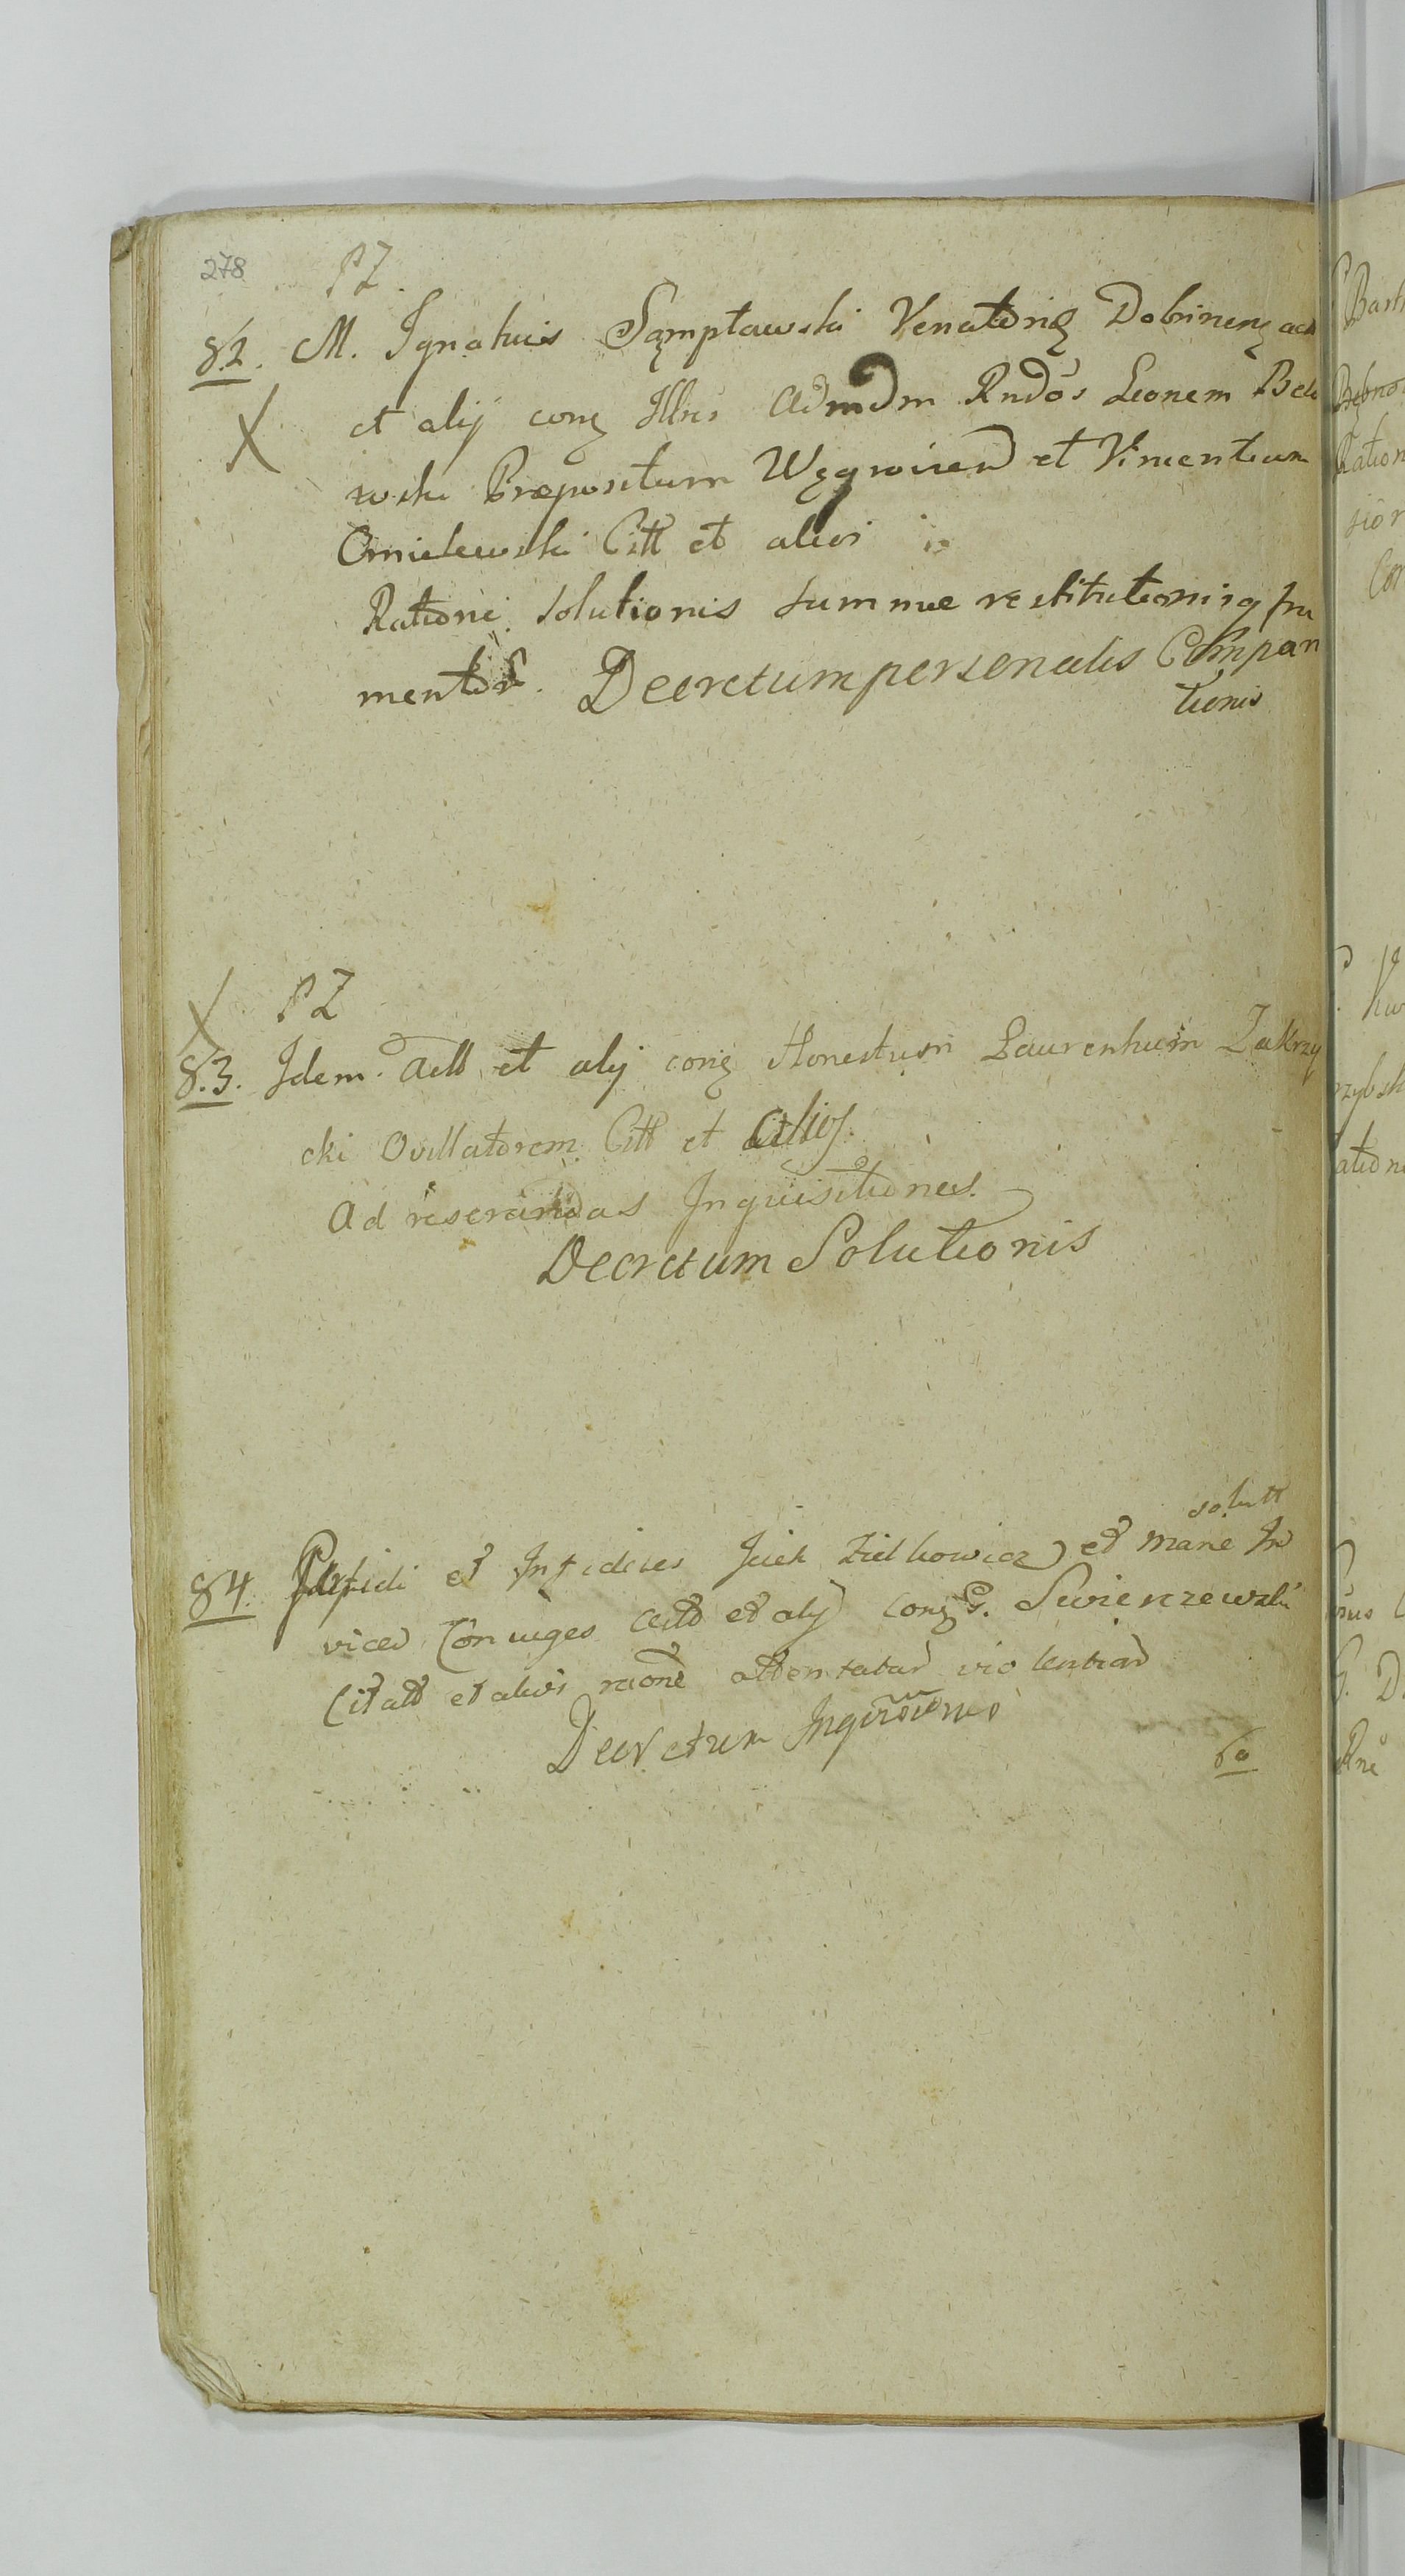 278
PZ.
82. M. Ignatius Sąmpławski Venatorię Dobrinenę act
X et alij conę Illres Admdm Rndos Leonem Beli
wski Præpositum Węgrovien et Vincentium
Cmielewski Citt et alios
Rationi solutionis summæ restitutionisq fru
mentor. Decretum personalis Compari
tionis
X PZ
83. Idem Actt et alij conę Honestum Laurentium Zakrzy
cki Ovillatorem Citt et alios.
Ad reserandas Inquisitiones.
Decretum Solutionis
solutt
84. Perfidi et Infideles Jcek Zielkowicz et Marie
vices Conjuges Actt et alij conę G. Swierczewski
Citatt et alios raone attentatar violentiar
Decretum Inquisitionis
60